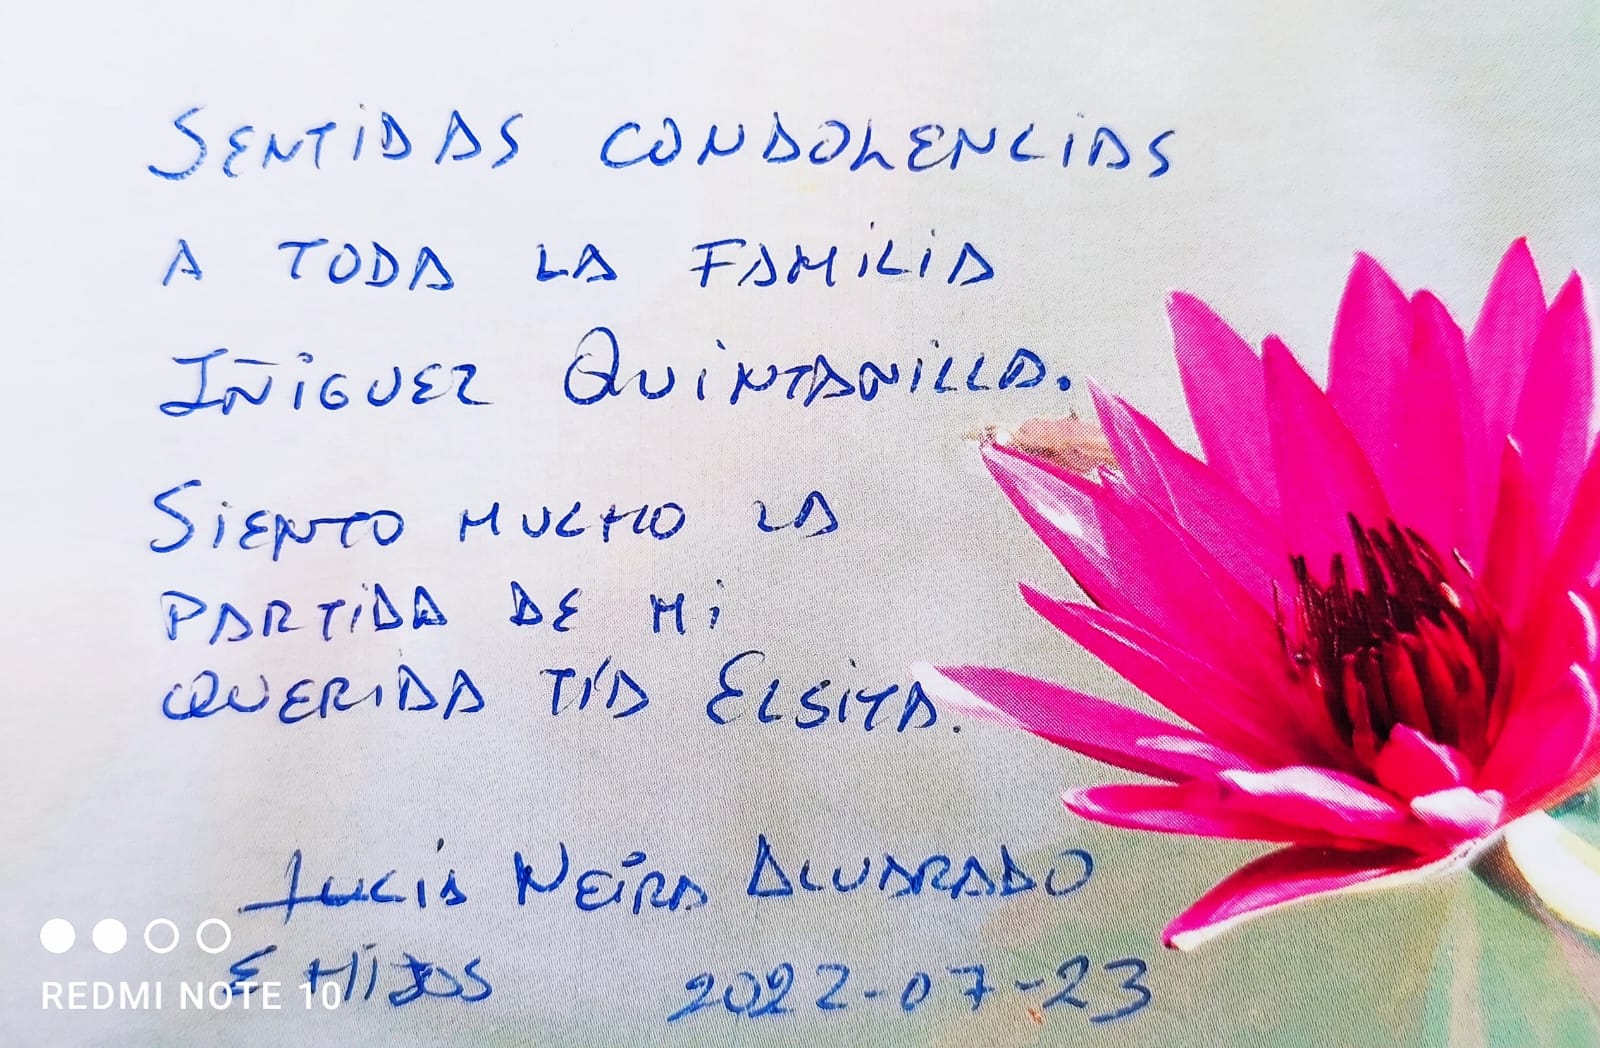 SENTIDAS CONDOLENCIAS
A TODA LA FAMILIA
IÑIGUEZ QUINTANILLA.
SIENTO MUCHO LA
PARTIDA DE MI
QUERIDA TÍA ELSITA.
LUCIA NEIRA ALVARADO
E HIJOS 2022-07-23
REDMI NOTE 10